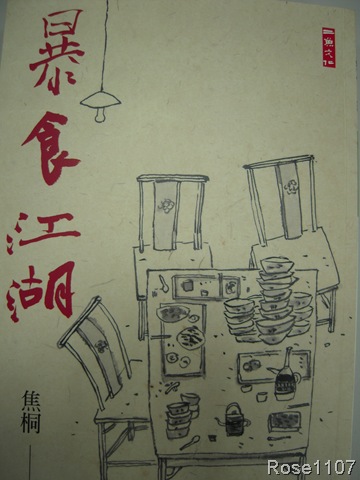 暴食江湖
二魚文化
焦桐
Rose1107